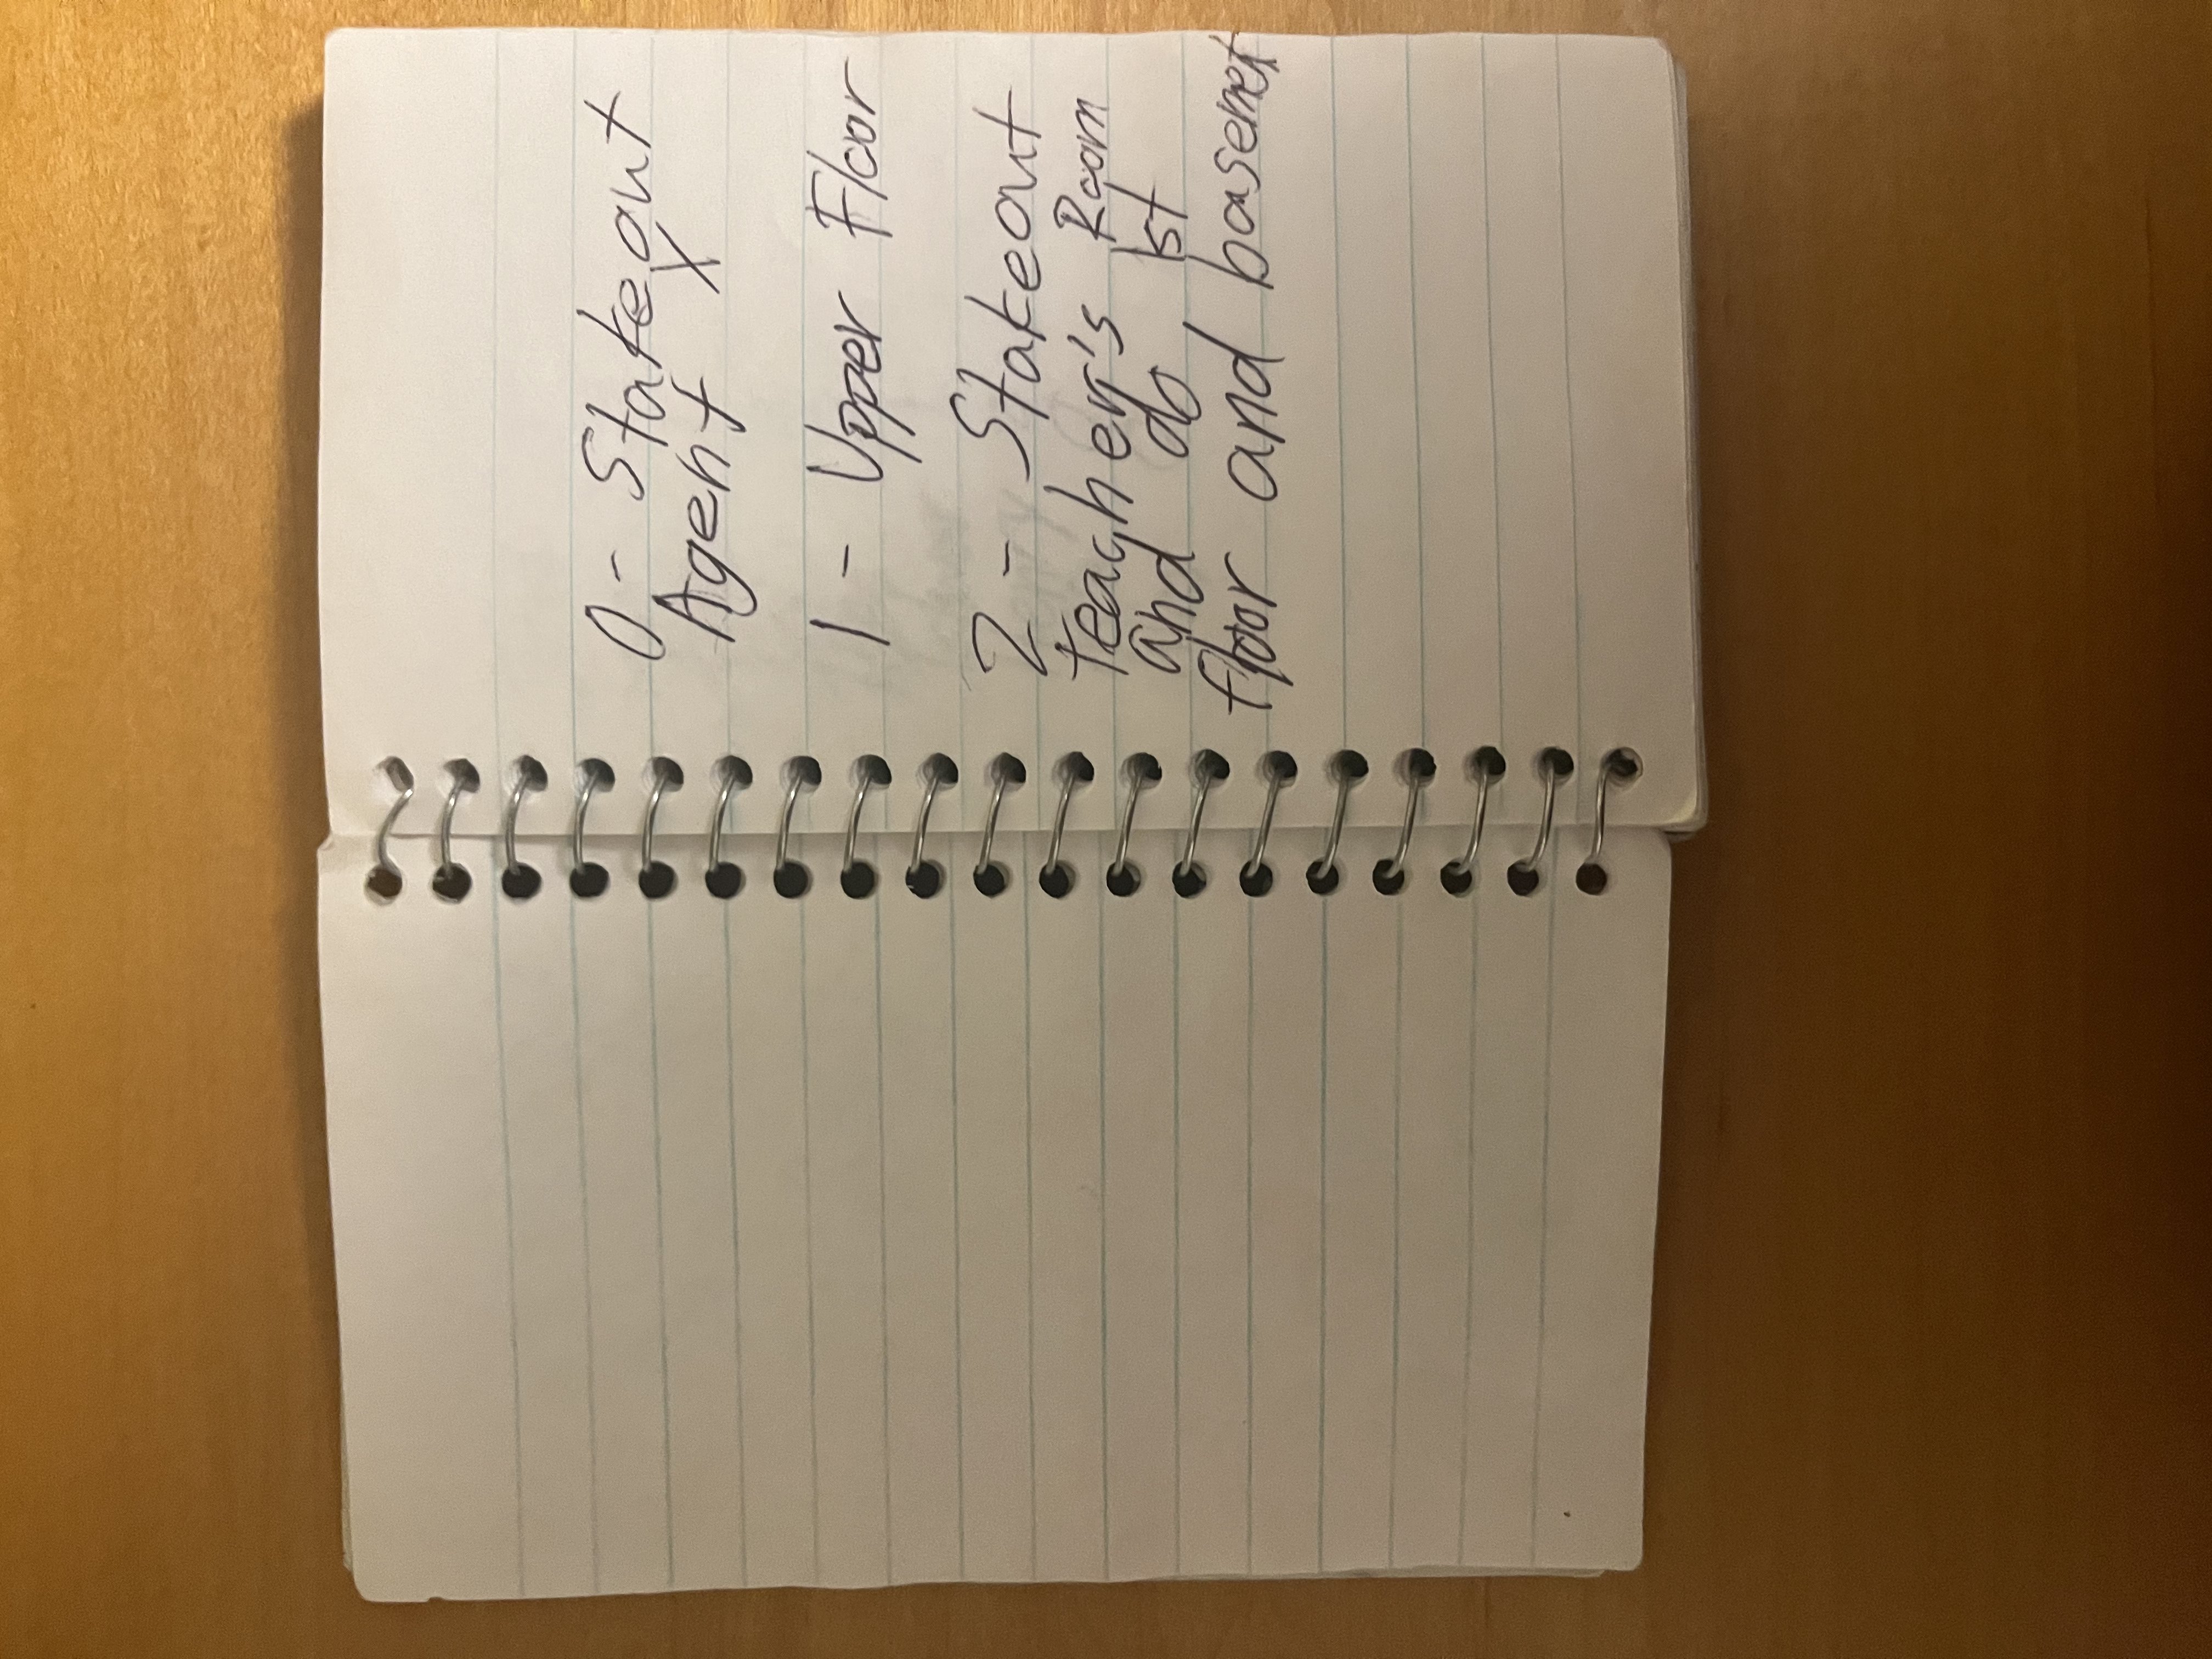 0 - Stakeout
Agent X
1 - Upper Floor
2 - Stakeout
teacher's Room
and do 1st
floor and basemet